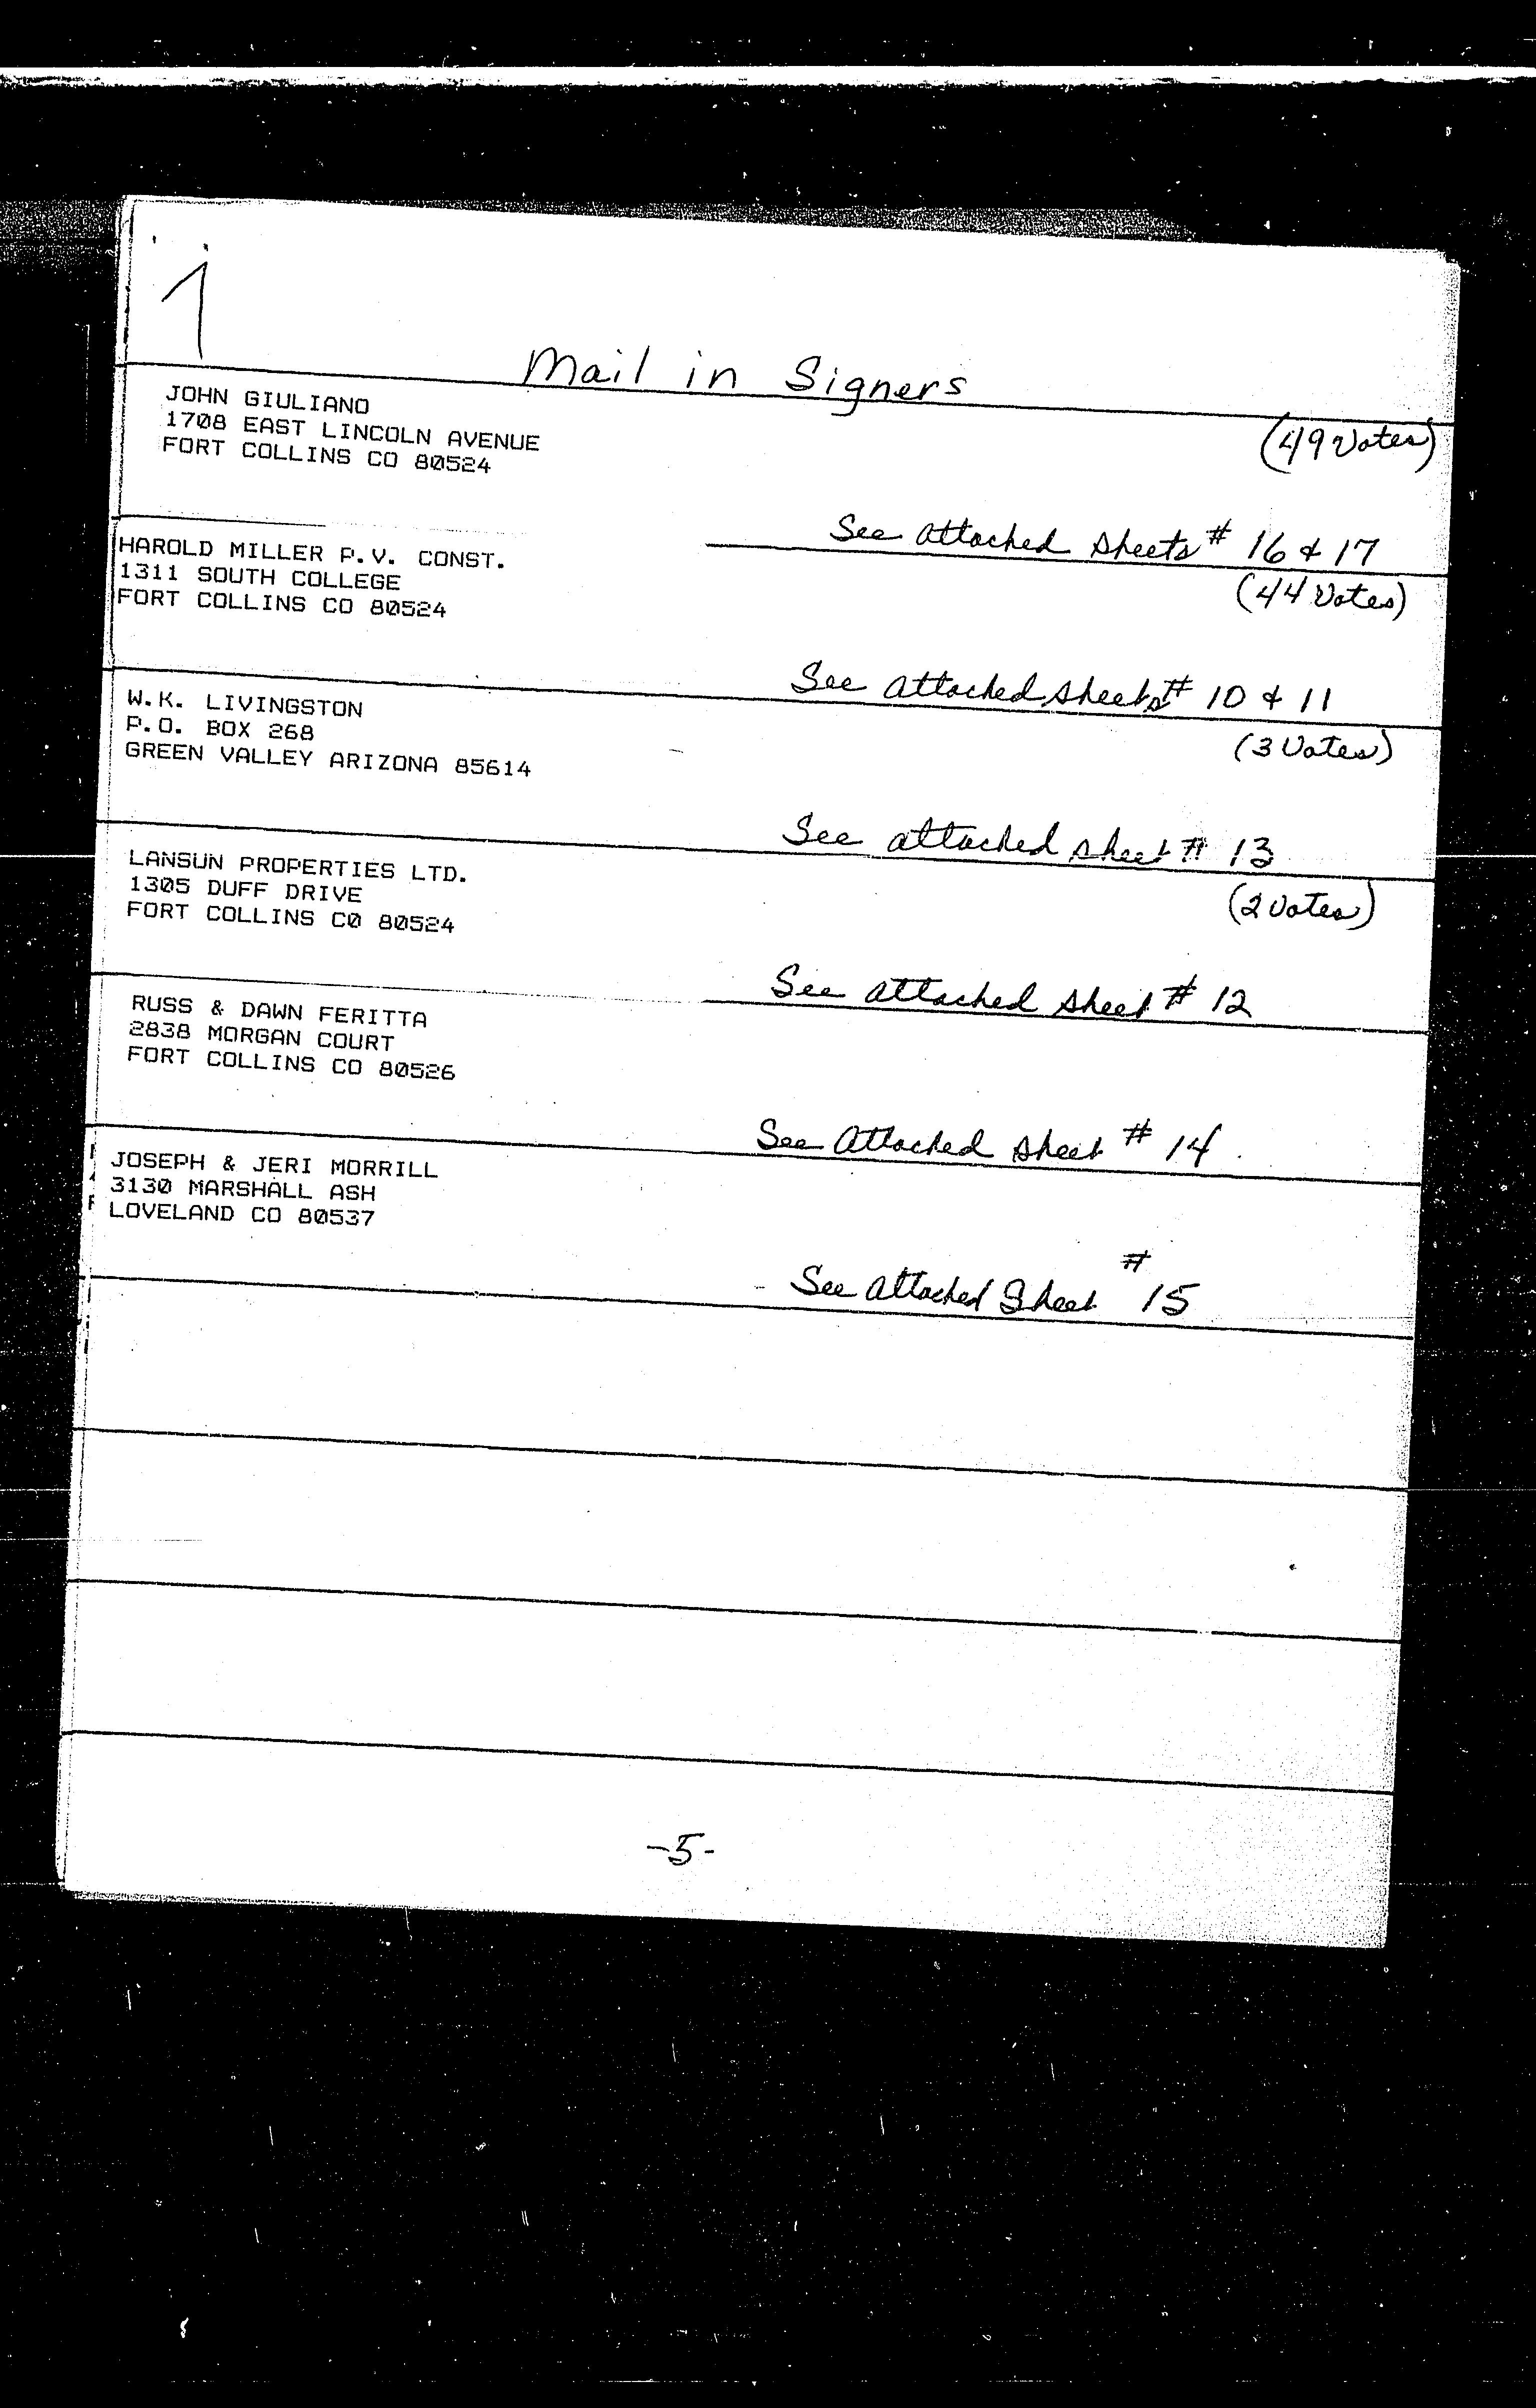 1
Mail in Signers
JOHN GIULIANO
1708 EAST LINCOLN AVENUE
FORT COLLINS CO 80524
(49 Votes)
See attached sheets # 16 & 17
HAROLD MILLER P.V. CONST.
1311 SOUTH COLLEGE
FORT COLLINS CO 80524
(44 Votes)
See attached sheets # 10 & 11
W.K. LIVINGSTON
P.O. BOX 268
GREEN VALLEY ARIZONA 85614
(3 Votes)
See attached sheet # 13
LANSUN PROPERTIES LTD.
1305 DUFF DRIVE
FORT COLLINS CO 80524
(2 Votes)
See attached sheet # 12
RUSS & DAWN FERITTA
2838 MORGAN COURT
FORT COLLINS CO 80526
See Attached sheet # 14
JOSEPH & JERI MORRILL
3130 MARSHALL ASH
LOVELAND CO 80537
See Attached Sheet # 15
-5-